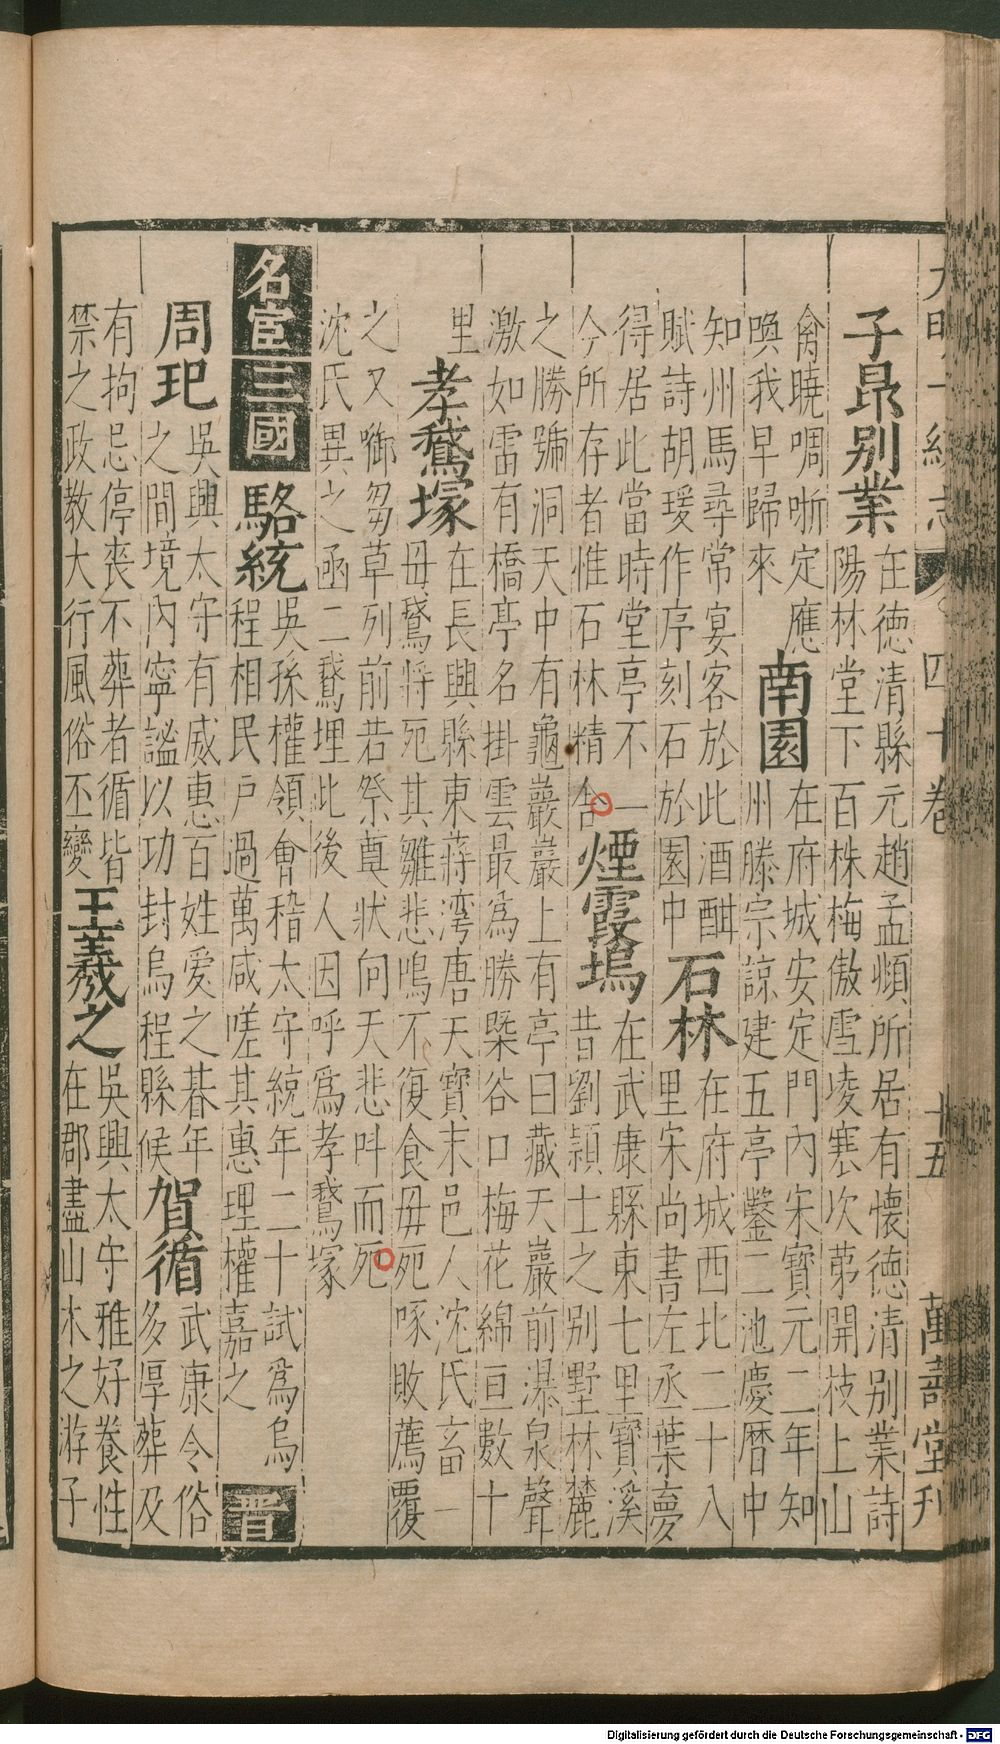 大明一統志 四十卷 十五 萬壽堂刊
子昂别業
在德清縣元趙孟頫所居有懷德清别業詩
陽林堂下百株梅傲雪凌寒次第開枝上山
禽曉啁哳定應
喚我早歸來
南園
在府城安定門內宋寶元二年知
州滕宗諒建五亭鑿二池慶曆中
知州馬尋常宴客於此酒酣
賦詩胡瑗作序刻石於園中
石林
在府城西北二十八
里宋尚書左丞葉夢
得居此當時堂亭不一
今所存者惟石林精舍
煙霞塢
在武康縣東七里寶溪
昔劉頴士之别墅林麓
之勝號洞天中有龜巖巖上有亭曰藏天巖前瀑泉聲
激如雷有橋亭名掛雲最爲勝槩谷口梅花綿亘數十
里
孝鵞塚
在長興縣東蔣湾唐天寶末邑人沈氏畜一
母鵞將死其雛悲鳴不復食母死啄敗薦覆
之又啣芻草列前若祭奠狀向天悲呌而死
沈氏異之函二鵞埋此後人因呼爲孝鵞塚
名宦
三國
駱統
吳孫權領會稽太守統年二十試爲烏
程相民戶過萬咸嗟其惠理權嘉之
晋
周玘
吳興太守有威惠百姓愛之朞年
之間境內寧謐以功封烏程縣候
賀循
武康令俗
多厚葬及
有拘忌停丧不葬者循皆
禁之政教大行風俗丕變
王羲之
吳興太守雅好養性
在郡盡山水之游子
Digitalisierung gefördert durch die Deutsche Forschungsgemeinschaft - DFG